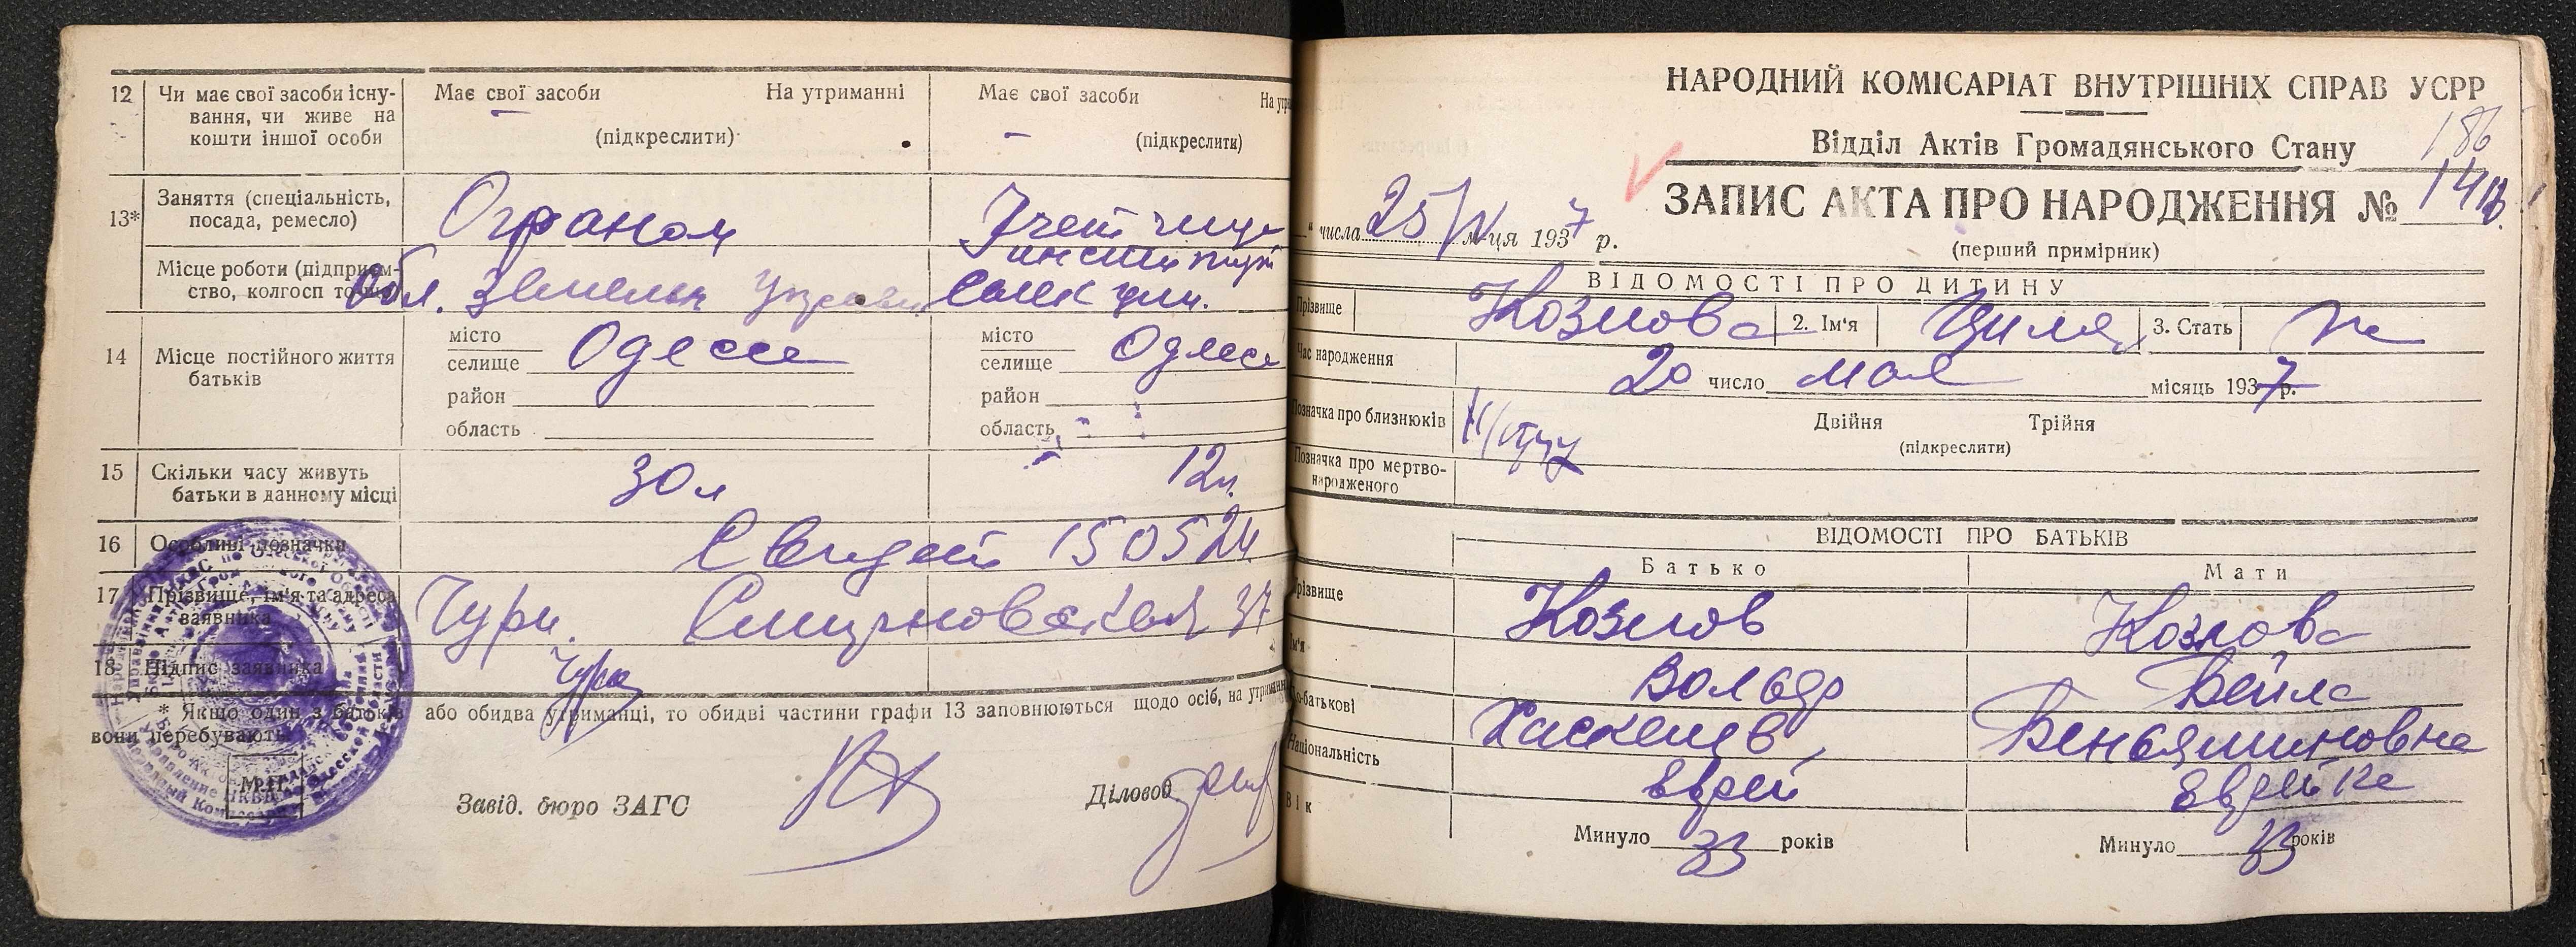 12 Чи має свої засоби існу-
вання, чи живе на
кошти іншої особи
Має свої засоби На утриманні
(підкреслити)
Має свої засоби
(підкреслити)
13* Заняття (спеціальність,
посада, ремесло)
Огроном
Місце роботи (підприєм-
ство, колгосп
Обл. Земельн
14 Місце постійного життя
батьків
місто
селище Одесса
район
область
місто
селище Одесса
район
область
15 Скільки часу живуть
батьки в данному місці
30 л 12 л.
16 Особливі позначки
Свидет 150524
17 Прізвище, ім'я та адреса
заявника
18 Підпис заявника
* Якщо один з батьків або обидва утриманці, то обидві частини графи 13 заповнюються щодо осіб, на
вони перебувають
М.П.
Завід. бюро ЗАГС Діловод
НАРОДНИЙ КОМІСАРІАТ ВНУТРІШНІХ СПРАВ УСРР
Відділ Актів Громадянського Стану
186
ЗАПИС АКТА ПРО НАРОДЖЕННЯ №
„ числа 25/V м-ця 1937 р.
(перший примірник)
ВІДОМОСТІ ПРО ДИТИНУ
Прізвище Козлова 2. Ім'я Циля 3. Стать ж
Час народження 20 число мая місяць 1937 р.
Позначка про близнюків Двійня Трійня
(підкреслити)
Позначка про мертво-
народженого
ВІДОМОСТІ ПРО БАТЬКІВ
Батько Мати
Прізвище Козлов Козлова
Ім'я Вольдр Бейла
По-батькові Хаскелев Беньяминовна
Національність Еврей Еврейка
Вік
Минуло 33 років Минуло 33 років